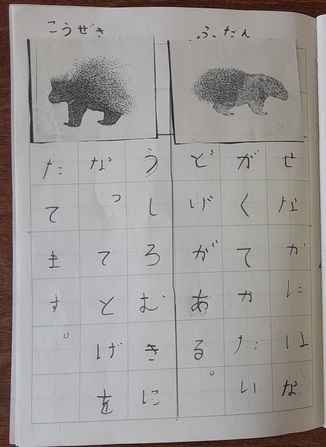 ふだん
せなかにはな
がくてかたい
とげがある。
こうげき
うしろむきに
なってとげを
たてます。